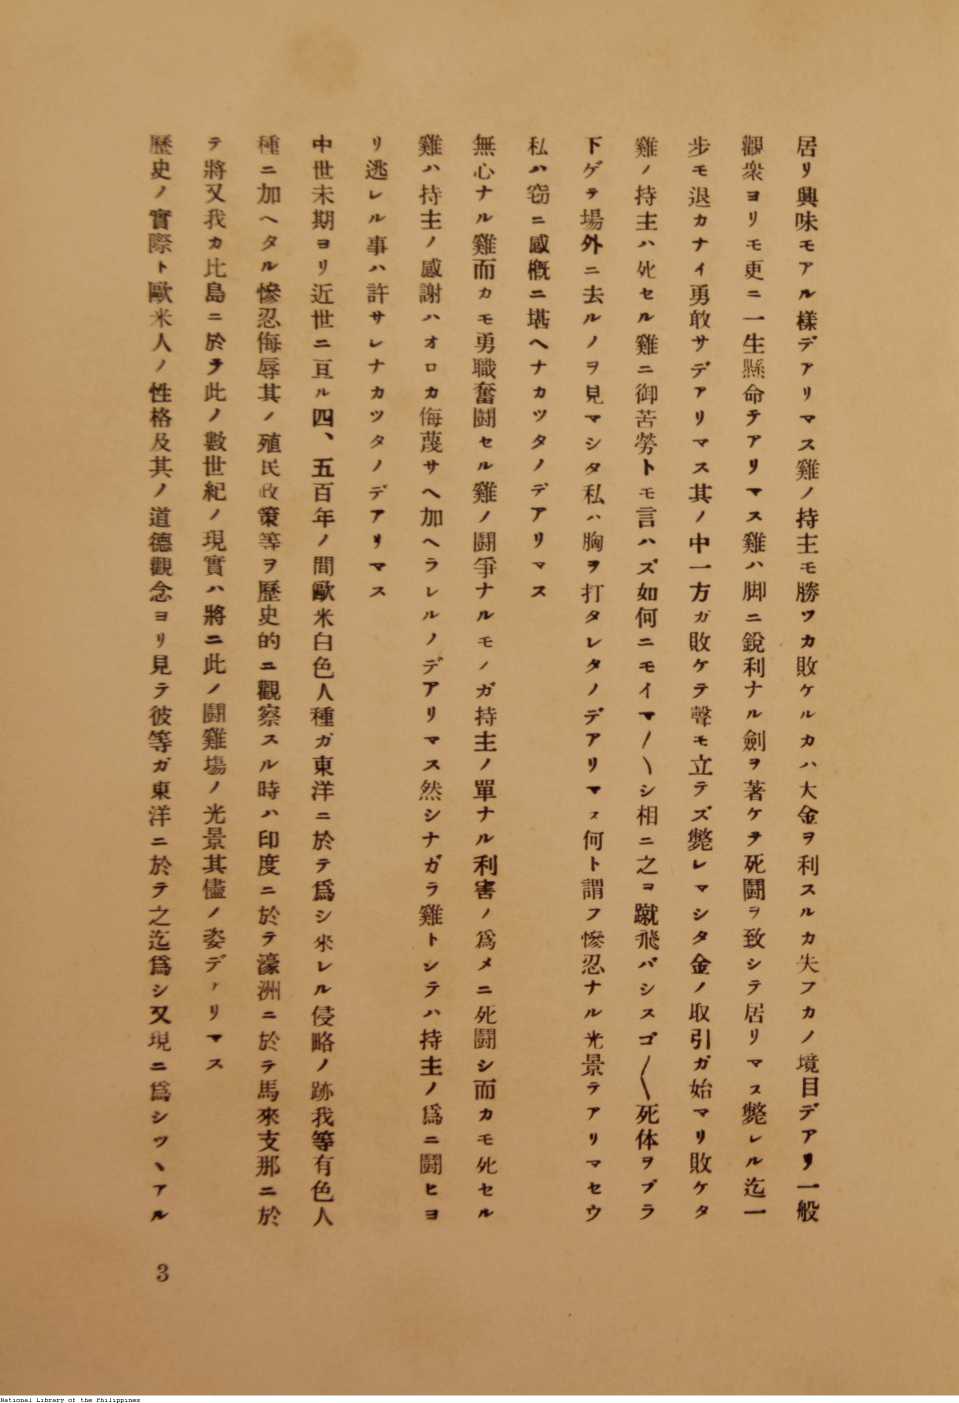 居リ興味モアル樣デアリマス雞ノ持主モ勝ツカ敗ケルカハ大金ヲ利スルカ失フカノ境目デアリ一般
觀衆ヨリモ更ニ一生懸命テアリマス雞ハ脚ニ銳利ナル劍ヲ著ケテ死鬪ヲ致シテ居リマス斃レル迄一
步モ退カナイ勇敢サデアリマス其ノ中一方ガ敗ケテ聲モ立テズ斃レマシタ金ノ取引ガ始マリ敗ケタ
雞ノ持主ハ死セル雞ニ御苦勞トモ言ハズ如何ニモイマ〳〵シ相ニ之ヲ蹴飛バシスゴ〳〵死体ヲブラ
下ゲテ場外ニ去ルノヲ見マシタ私ハ胸ヲ打タレタノデアリマス何ト謂フ慘忍ナル光景テアリマセウ
私ハ窃ニ感槪ニ堪ヘナカツタノデアリマス
無心ナル雞而カモ勇職奮鬪セル雞ノ鬪爭ナルモノガ持主ノ單ナル利害ノ爲メニ死鬪シ而カモ死セル
雞ハ持主ノ感謝ハオロカ侮蔑サヘ加ヘラレルノデアリマス然シナガラ雞トシテハ持主ノ爲ニ鬪ヒヨ
リ逃レル事ハ許サレナカツタノデアリマス
中世末期ヨリ近世ニ亙ル四、五百年ノ間歐米白色人種ガ東洋ニ於テ爲シ來レル侵略ノ跡我等有色人
種ニ加ヘタル慘忍侮辱其ノ殖民政策等ヲ歷史的ニ觀察スル時ハ印度ニ於テ濠洲ニ於テ馬來支那ニ於
テ將又我カ比島ニ於テ此ノ數世紀ノ現實ハ將ニ此ノ鬪雞場ノ光景其儘ノ姿デアリマス
歷史ノ實際ト歐米人ノ性格及其ノ道德觀念ヨリ見テ彼等ガ東洋ニ於テ之迄爲シ又現ニ爲シツヽアル
3
National Library of the Philippines